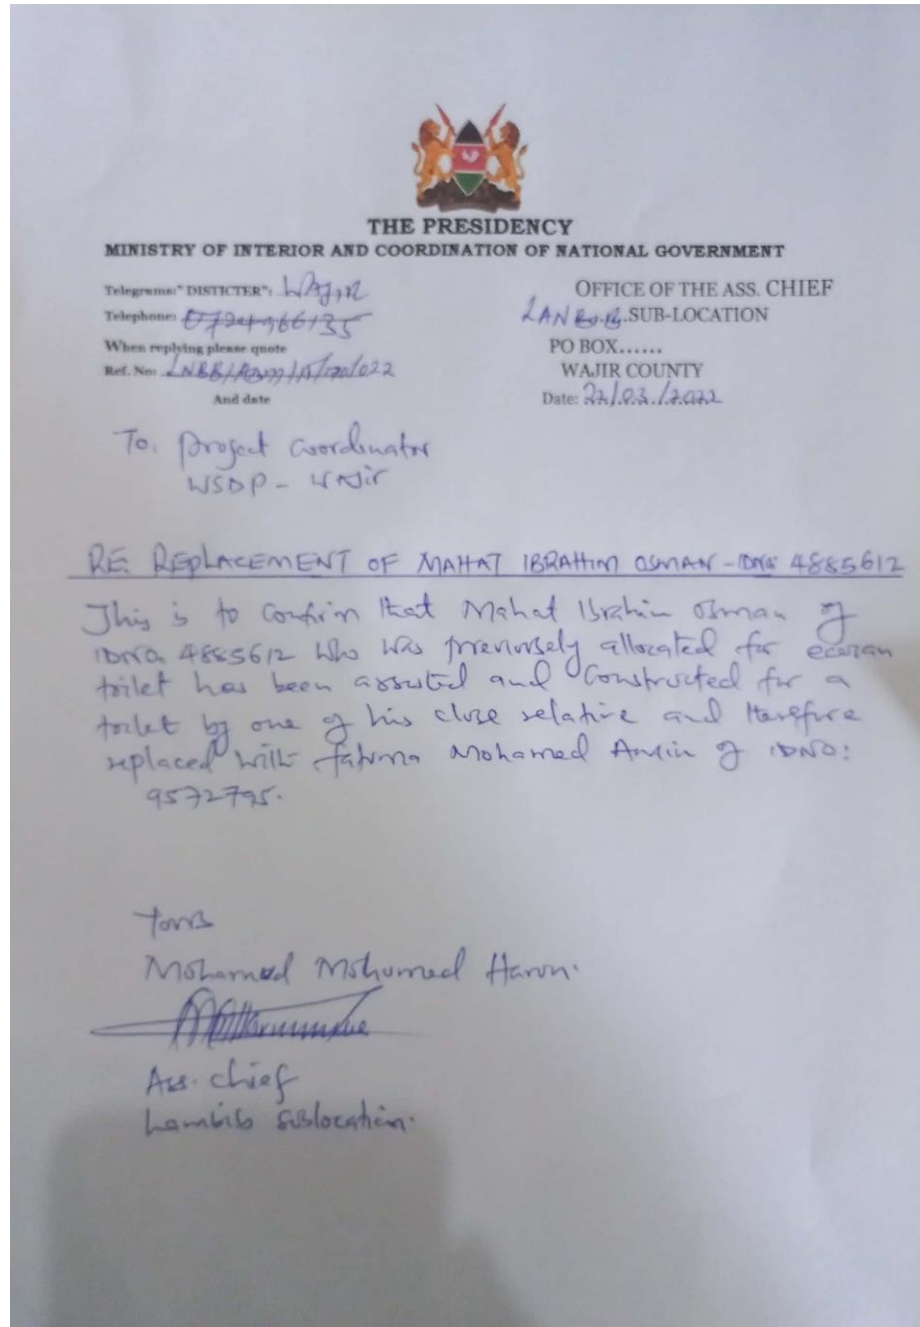 THE PRESIDENCY
MINISTRY OF INTERIOR AND COORDINATION OF NATIONAL GOVERNMENT
Telegrams:" DISTICTER": WAJIR
Telephone:
When replying please quote
Ref. No:
And date
OFFICE OF THE ASS. CHIEF
SUB-LOCATION
PO BOX......
WAJIR COUNTY
Date: 22/03/2022
To. project coordinator
WSDP - Wajir
RE: REPLACEMENT OF MAHAT IBRAHIM OSMAN - IDNO: 4885612
This is to confirm that Mahat Ibrahim Osman of
IDNO. 4885612 who was previously allocated for ecosan
toilet has been assisted and constructed for a
toilet by one of his close relative and therefore
replaced with fatuma Mohamed Amin of IDNO:
9572795.
Yours
Mohamed Mohumed Haron.
Ass. chief
Lambib sublocation.